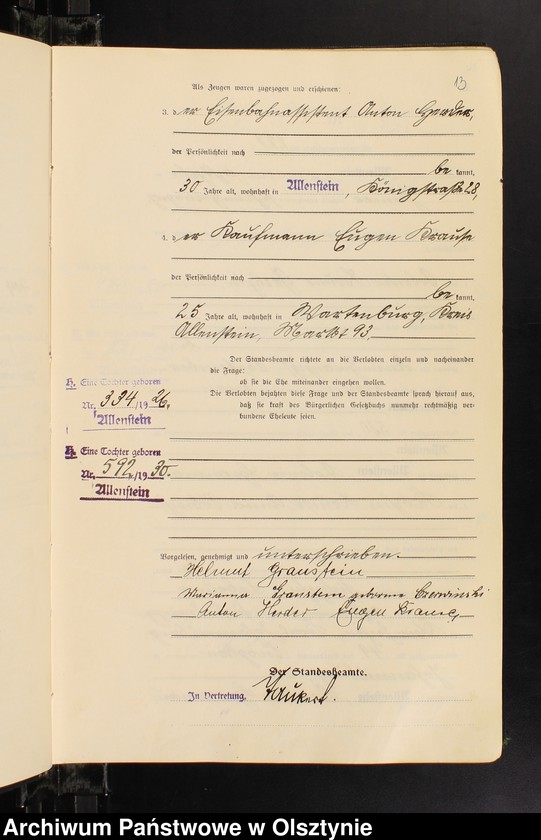 13
Als Zeugen waren zugezogen und erschienen:
3. der Eisenbahnassistent Anton Herder,
der Persönlichkeit nach
be kannt,
30 Jahre alt, wohnhaft in Allenstein, Königstraße 28,
4. der Kaufmann Eugen Krause
der Persönlichkeit nach
be kannt,
25 Jahre alt, wohnhaft in Wartenburg, Kreis
Allenstein, Markt 93.
Der Standesbeamte richtete an die Verlobten einzeln und nacheinander
die Frage:
ob sie die Ehe miteinander eingehen wollen.
Die Verlobten bejahten diese Frage und der Standesbeamte sprach hierauf aus,
daß sie kraft des Bürgerlichen Gesetzbuchs nunmehr rechtmäßig ver-
bundene Eheleute seien.
H. Eine Tochter geboren
Nr. 334/1926.
Allenstein
H. Eine Tochter geboren
Nr. 592/1930.
Allenstein
Vorgelesen, genehmigt und unterschrieben.
Helmut Granstein
Marianna Granstein geborene Czerwinski
Anton Herder Eugen Krause,
Der Standesbeamte.
In Vertretung.
Archiwum Państwowe w Olsztynie